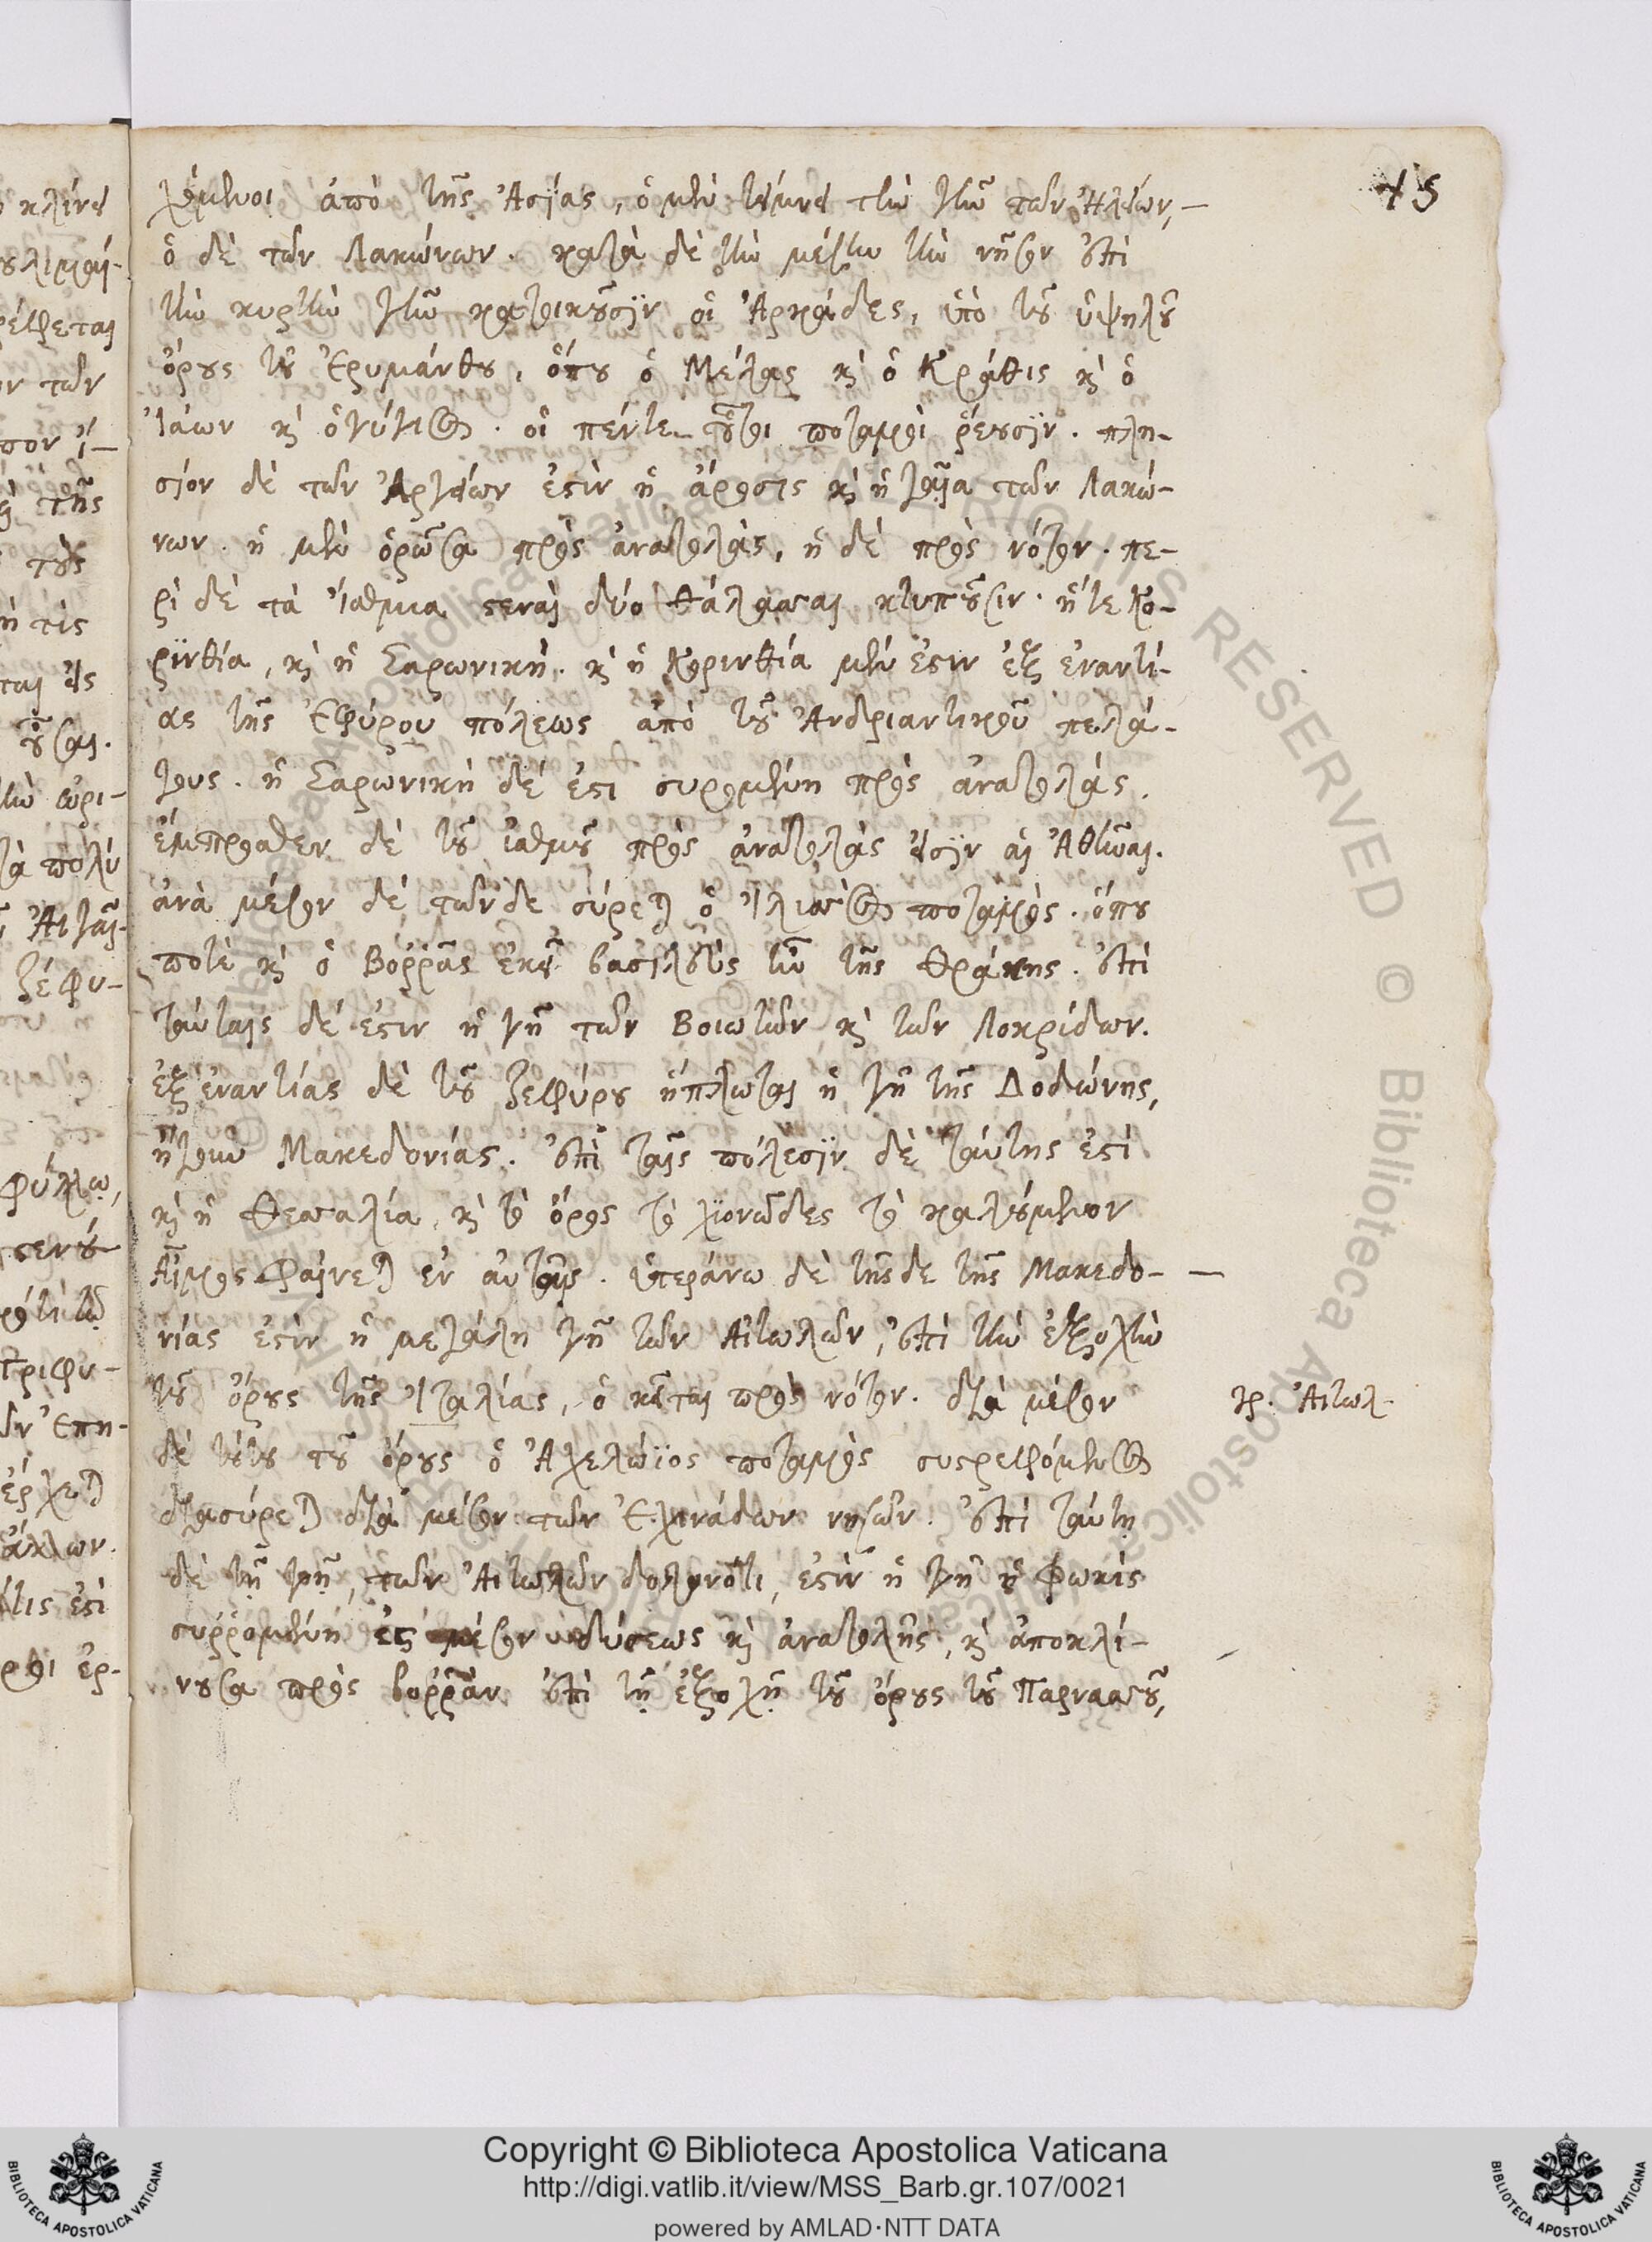 χόμενοι ἀπὸ τῆς Ἀσίας, ὁ μὲν τέμνει τὴν γῆν τῶν Ἠλείων,
ὁ δὲ τῶν Λακώνων. κατὰ δὲ τὴν μέσην τὴν νῆσον ἐπὶ
τὴν κυρτὴν γῆν κατοικοῦσιν οἱ Ἀρκάδες, ὑπὸ τοῦ ὑψηλοῦ
ὄρους τοῦ Ἐρυμάνθου, ὅπου ὁ Μέλας κὶ ὁ Κράθις κὶ ὁ
Ἰάων κὶ ὁ γύγιος. οἱ πέντε οὗτοι ποταμοὶ ῥέουσιν. πλη-
σίον δὲ τῶν Ἀργείων ἐστὶν ἡ ἄροσις κὶ ἡ γαῖα τῶν Λακώ-
νων. ἡ μὲν ὁρῶσα πρὸς ἀνατολὰς, ἡ δὲ πρὸς νότον. πε-
ρὶ δὲ τὰ Ἴσθμια στεναὶ δύο θάλασσαι κτυποῦσιν. ἥ τε Κο-
ρινθία, κὶ ἡ Σαρωνική. κὶ ἡ Κορινθία μέν ἐστιν ἐξ ἐναντί-
ας τῆς Ἐφύρου πόλεως ἀπὸ τοῦ Ἀνδριαντικοῦ πελά-
γους. ἡ Σαρωνικὴ δέ ἐστι συρομένη πρὸς ἀνατολάς.
ἔμπροσθεν δὲ τοῦ ἰσθμοῦ πρὸς ἀνατολὰς εἰσὶν αἱ Ἀθῆναι.
ἀνὰ μέσον δὲ τῶνδε σύρεται ὁ Ἰλισσὸς ποταμὸς. ὅπου
ποτὲ κὶ ὁ Βοῤῥᾶς ἐκεῖ βασιλεὺς ἦν τῆς Θράκης. ἐπὶ
ταύταις δέ ἐστιν ἡ γῆ τῶν Βοιωτῶν κὶ τῶν Λοκρίδων.
ἐξ ἐναντίας δὲ τοῦ ζεφύρου ἥπλωται ἡ γῆ τῆς Δοδώνης,
ἤγουν Μακεδονίας. ἐπὶ ταῖς πόλεσιν δὲ ταύτης ἐστὶ
κὶ ἡ Θεσσαλία, κὶ τὸ ὄρος τὸ χιονῶδες τὸ καλούμενον
Αἷμος φαίνεται ἐν αὐταῖς. ὑπεράνω δὲ τῆςδε τῆς Μακεδο-
νίας ἐστὶν ἡ μεγάλη γῆ τῶν Αἰτωλῶν, ἐπὶ τὴν ἐξοχὴν
τοῦ ὄρους τῆς Ἰταλίας, ὁ κεῖται πρὸς νότον. διὰ μέσον
γρ. Αἰτωλ.
δὲ τούτου τοῦ ὄρους ὁ Ἀχελώϊος ποταμὸς συστρεφόμενος
διασύρεται διὰ μέσον τῶν Ἐχινάδων νήσων. ἐπὶ ταύτῃ
δὲ τῇ γῇ, τῶν Αἰτωλῶν δολονότι, ἐστὶν ἡ γῆ ἡ Φωκὶς
συῤῥομένη εἰς μέσον δύσεως κὶ ἀνατολῆς, κὶ ἀποκλί-
νουσα πρὸς βοῤῥᾶν ἐπὶ τῇ ἐξοχῇ τοῦ ὄρους τοῦ Παρνασσοῦ,
Copyright © Biblioteca Apostolica Vaticana
http://digi.vatlib.it/view/MSS_Barb.gr.107/0021
powered by AMLAD·NTT DATA